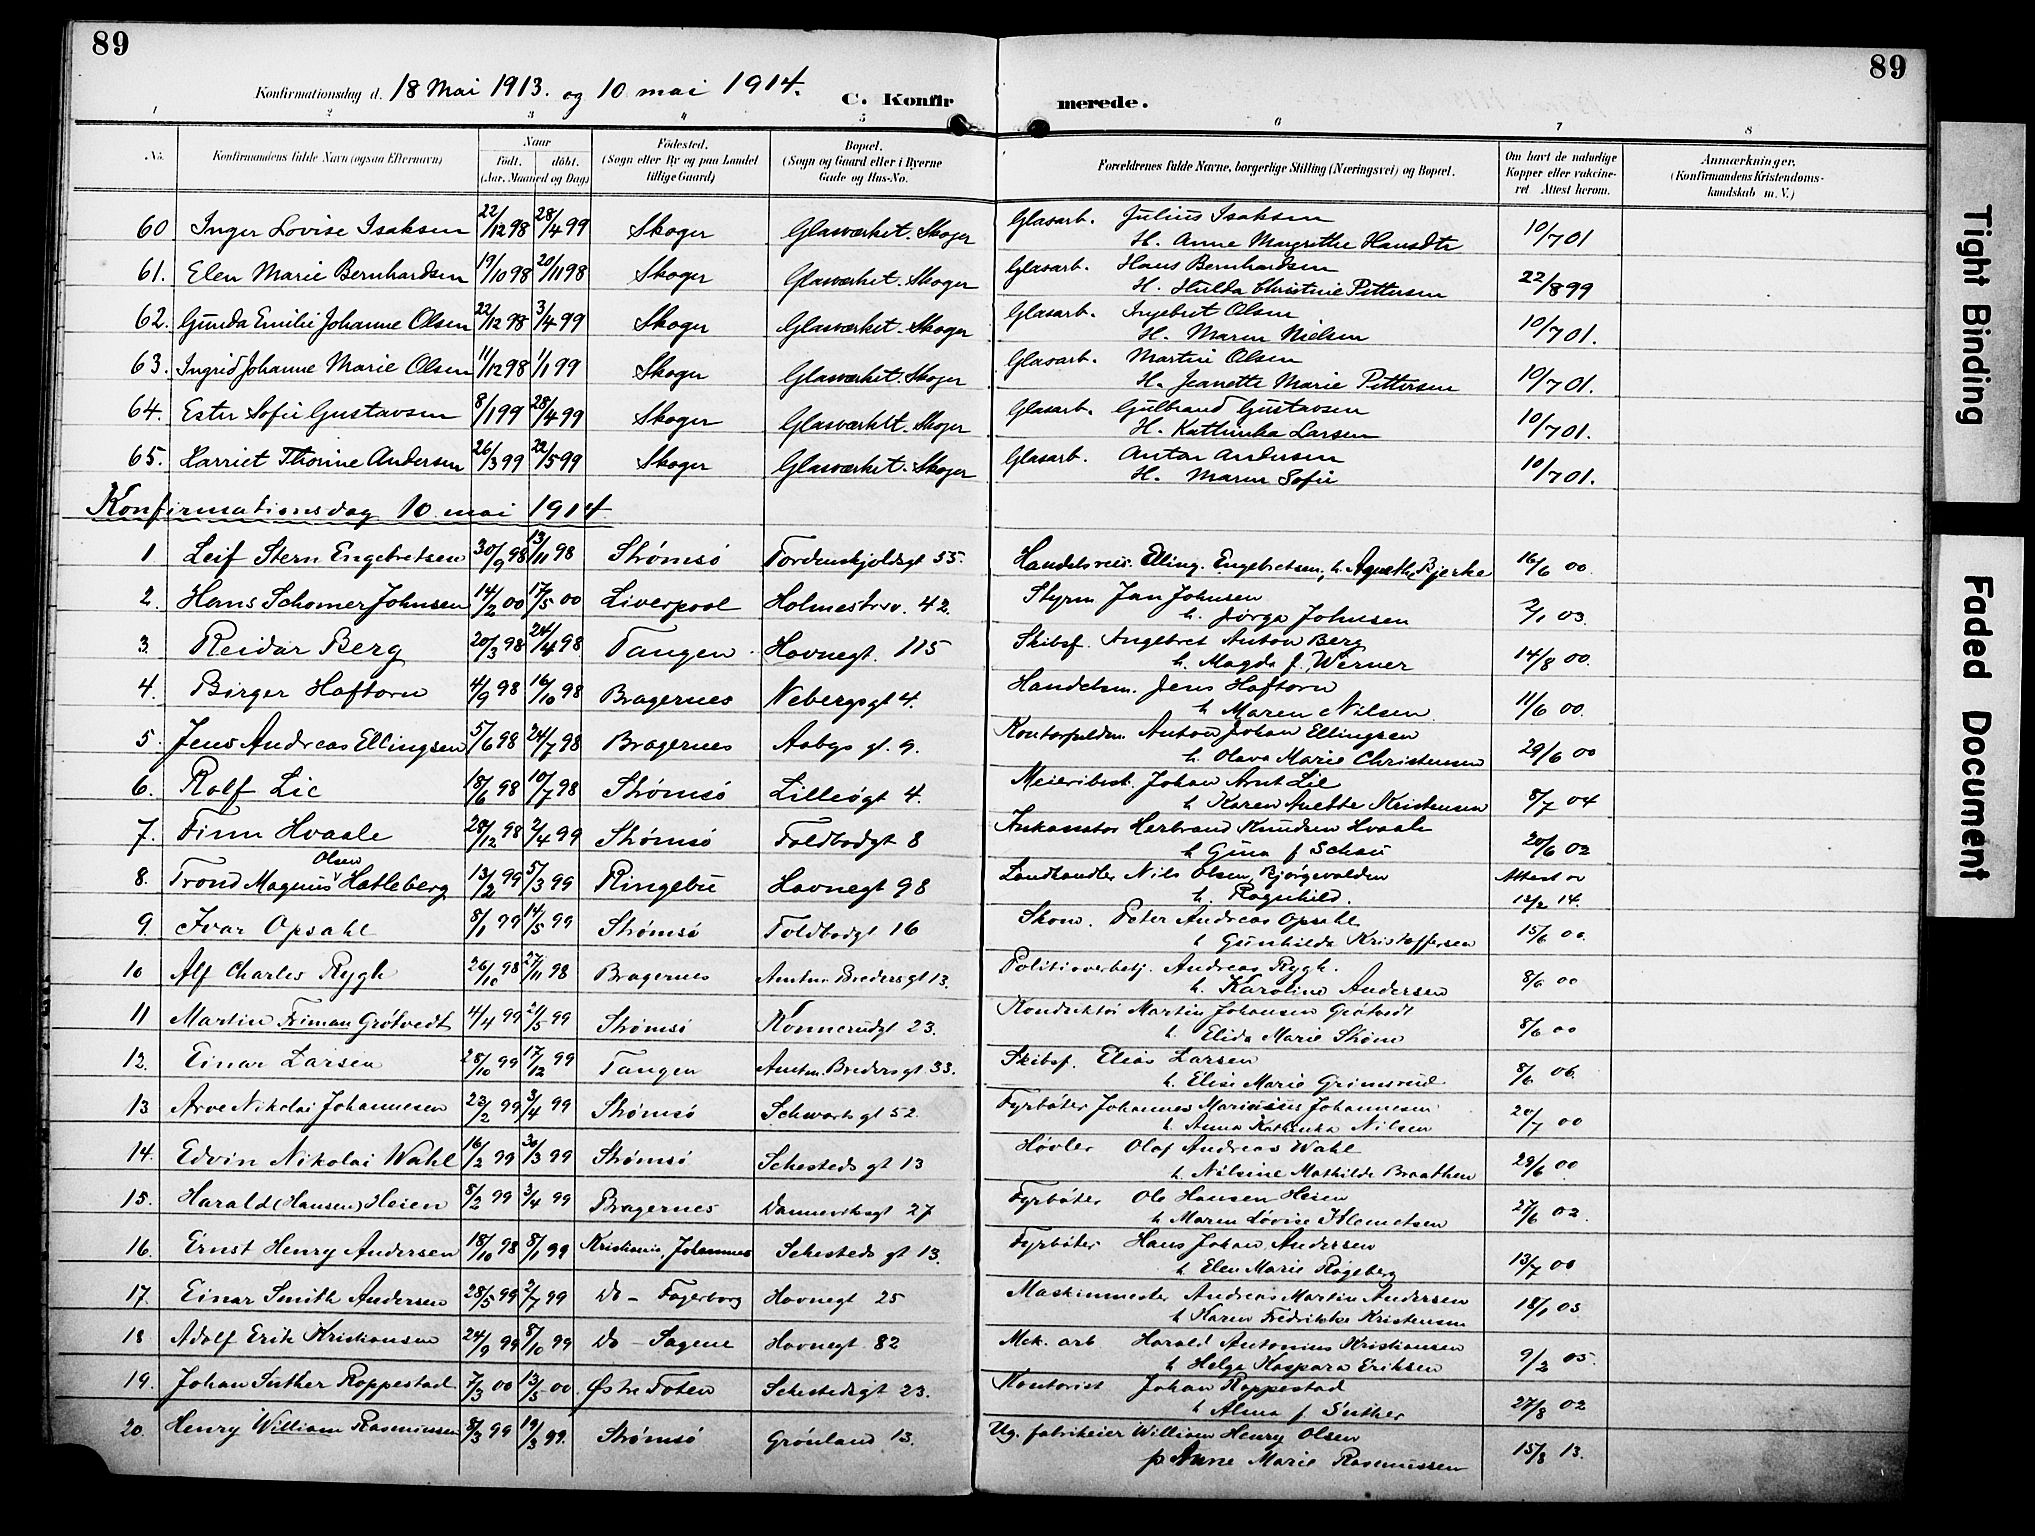 89
89
Konfirmationsdag d. 18 Mai 1913. og 10 mai 1914.
C. Konfirmerede.
1 2 3 4 5 6 7 8
No. Konfirmandens fulde Navn (ogsaa Efternavn) Naar født. døbt. (Aar, Maaned og Dag) Fødested. (Sogn eller By og paa Landet tillige Gaard) Bopæl. (Sogn og Gaard eller i Byerne Gade og Hus-No. Forældrenes fulde Navne, borgerlige Stilling (Næringsvei) og Bopæl. Om havt de naturlige Kopper eller vakcineret Attest herom. Anmærkninger. (Konfirmandens Kristendomskundskab m. V.)
60 Inger Lovise Isaksen 22/12 98 28/4 99 Skoger Glasværket. Skoger Glasarb. Julius Isaksen
H. Anne Margrethe Hansdtr 10/7 01
61. Elen Marie Bernhardsen 19/10 98 20/11 98 Skoger Glasværket. Skoger Glasarb. Hans Bernhardsen
H. Hulda Christine Pettersen 22/8 99
62. Gunda Emilie Johanne Olsen 22/12 98 3/4 99 Skoger Glasværket. Skoger Glasarb. Ingebret Olsen
H. Maren Nielsen 10/7 01.
63. Ingrid Johanne Marie Olsen 11/12 98 1/1 99 Skoger Glasværket. Skoger Glasarb. Martin Olsen
H. Jeanette Marie Pettersen 10/7 01.
64. Ester Sofie Gustavsen 8/1 99 28/4 99 Skoger Glasværket. Skoger Glasarb. Gulbrand Gustavsen
H. Kathinka Larsen 10/7 01.
65. Harriet Thorine Andersen 26/3 99 22/5 99 Skoger Glasværket. Skoger Glasarb. Anton Andersen
H. Maren Sofie 10/7 01.
Konfirmationsdag 10. mai 1914
1 Leif Stern Engebretsen 30/9 98 13/11 98 Strømsø Tordenskjoldsgt 55. Handelsreis. Elling. Engebretsen, h. Agnethe Bjerke 16/6 00.
2. Hans Schomer Johnsen 14/2 00 17/5 00 Liverpool Holmestrv. 42. Styrm Jan Johnsen
h. Jørga Johnsen 2/1 03.
3. Reidar Berg 20/3 98 24/4 98 Tangen Havnegt. 115 Skibsf. Angebret Anton Berg
h. Magda f. Werner 14/8 00.
4. Birger Haftorn 4/9 98 16/10 98 Bragernes Nebergsgt 4. Handelsm. Jens Haftorn
h Maren Nilsen 11/6 00.
5. Jens Andreas Ellingsen 5/6 98 24/7 98 Bragernes Aabys gt. 9. Kontorfuldm. Anton Johan Ellingsen
h. Olava Marie Christensen 29/6 00
6. Rolf Lie 18/6 98 10/7 98 Strømsø Lilleøgt 4. Meieribest. Johan Arnt Lie
h Karen Anette Kristensen 8/7 04
7. Finn Hvaale 28/12 98 2/4 99 Strømsø Toldbodgt 8 Inkassator Herbrand Knudsen Hvaale
h Gina f Schau 20/6 02
8. Trond Magnus Olsen Hatleberg 13/2 99 5/3 99 Ringebu Havnegt 98 Landhandler Nils Olsen, Bjørgevolden
h. Ragnhild. Attest av 12/2 14.
9. Ivar Opsahl 8/1 99 14/5 99 Strømsø Toldbodgt 16 Skom. Peter Andreas Opsahl
h Gunhilda Kristoffersen 15/6 00.
10 Alf Charles Rygh 26/10 98 27/11 98 Bragernes Amtm Bredersgt 13. Politioverbetj. Andreas Rygh.
h. Karoline Andersen 8/6 00
11 Martin Friman Grøtvedt 4/4 99 21/5 99 Strømsø Konnerudgt 23. Konduktør Martin Johansen Grøtvedt
h Elida Marie Strøm 8/6 00
12. Einar Larsen 28/10 99 17/12 99 Tangen Amtm. Bredersgt 33. Skibsf. Elias Larsen
h. Elise Marie Grimsrud 8/6 06.
13 Arve Nikolai Johannesen 23/2 99 3/4 99 Strømsø Schwartsgt 52. Fyrbøter Johannes Marinius Johannesen
h. Anna Kathinka Nilsen 20/7 00
14. Edvin Nikolai Wahl 16/2 99 30/3 99 Strømsø Schesteds gt 13 Høvler Olaf Andreas Wahl
h. Nilsine Mathilde Braathen 29/6 00.
15. Harald (Hansen) Heien 8/2 99 3/4 99 Bragernes Danneviksgt 27 Fyrbøter Ole Hansen Heien
h Maren Lovise Klemetsen 27/6 02.
16. Ernst Henry Andersen 18/10 98 8/1 99 Kristiania, Johannes Schesteds gt 13. Fyrbøter Hans Johan Andersen
h Elen Marie Røgeberg 13/7 00
17. Einar Smith Andersen 28/5 99 2/7 99 Do - Fagerborg Havnegt 25 Maskinmester Andreas Martin Andersen
h Karen Fredrikke Kristensen 18/1 03
18 Adolf Erik Kristiansen 24/9 99 8/10 99 Do - Sagene Havnegt 82 Mek. arb Harald Antonius Kristiansen
h Helga Kaspara Eriksen 9/2 05.
19. Johan Suther Roppestad 7/3 00 13/5 00. Østre Toten Schestedsgt 23. Kontorist Johan Roppestad
h Alma f Suther 27/8 02
20. Henry William Rasmussen 8/3 99 19/3 99. Strømsø Grønland 13. Ug. fabrikeier William Henry Olsen
p Anne Marie Rasmussen 15/3 13.
Tight Binding
Faded Document